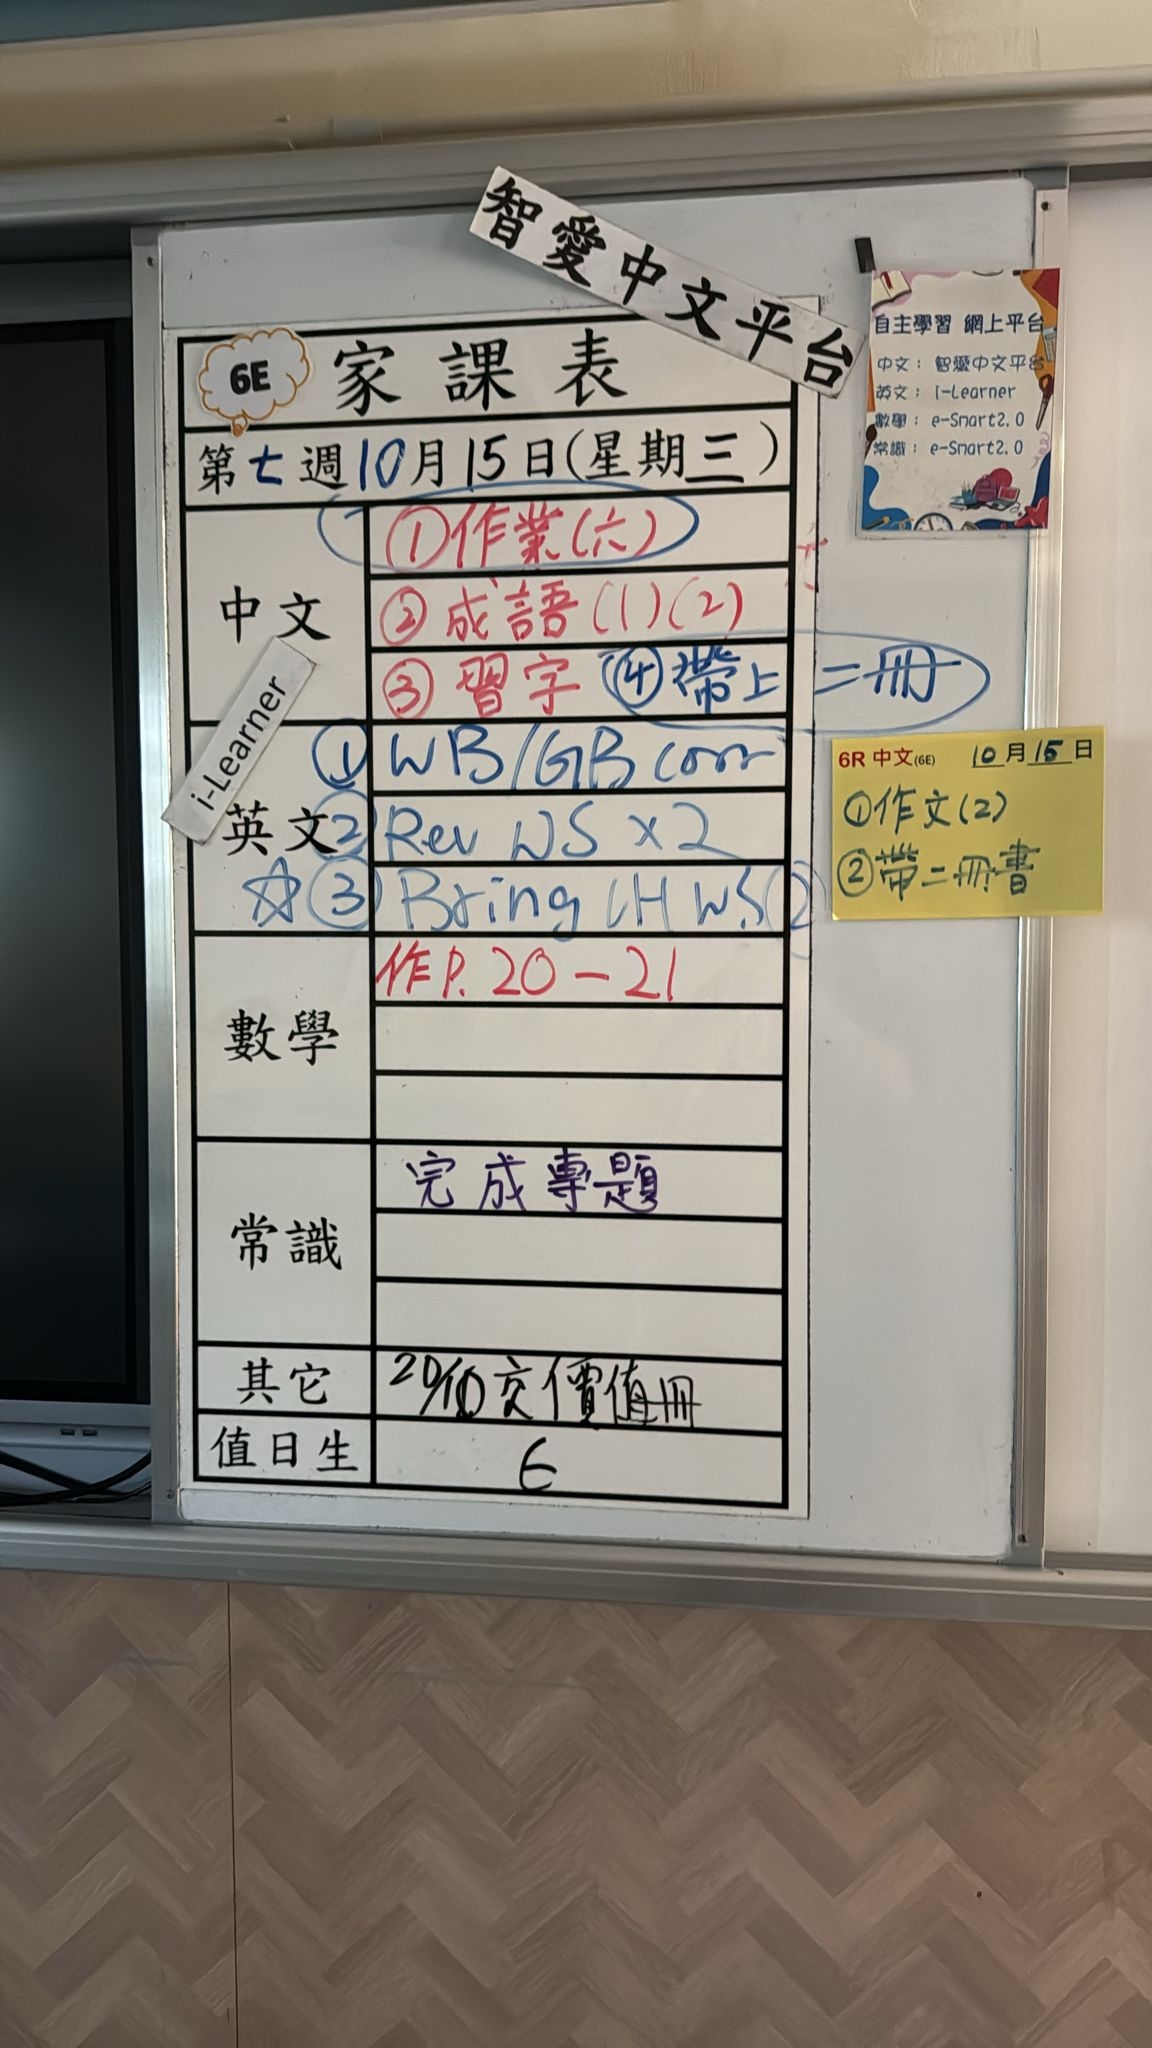 智愛中文平台
6E 家課表
第七週10月15日(星期三)
中文
①作業(六)
②成語(1)(2)
③習字 ④帶上二冊
i-Learner
英文
①WB/GB corr
②Rev WS x2
☆③Bring LH WS(2)
數學
作P.20-21
常識
完成專題
其它
20/10交價值冊
值日生
E
自主學習 網上平台
中文：智愛中文平台
英文：i-Learner
數學：e-Smart2.0
常識：e-Smart2.0
6R 中文(6E) 10月15日
①作文(2)
②帶二冊書